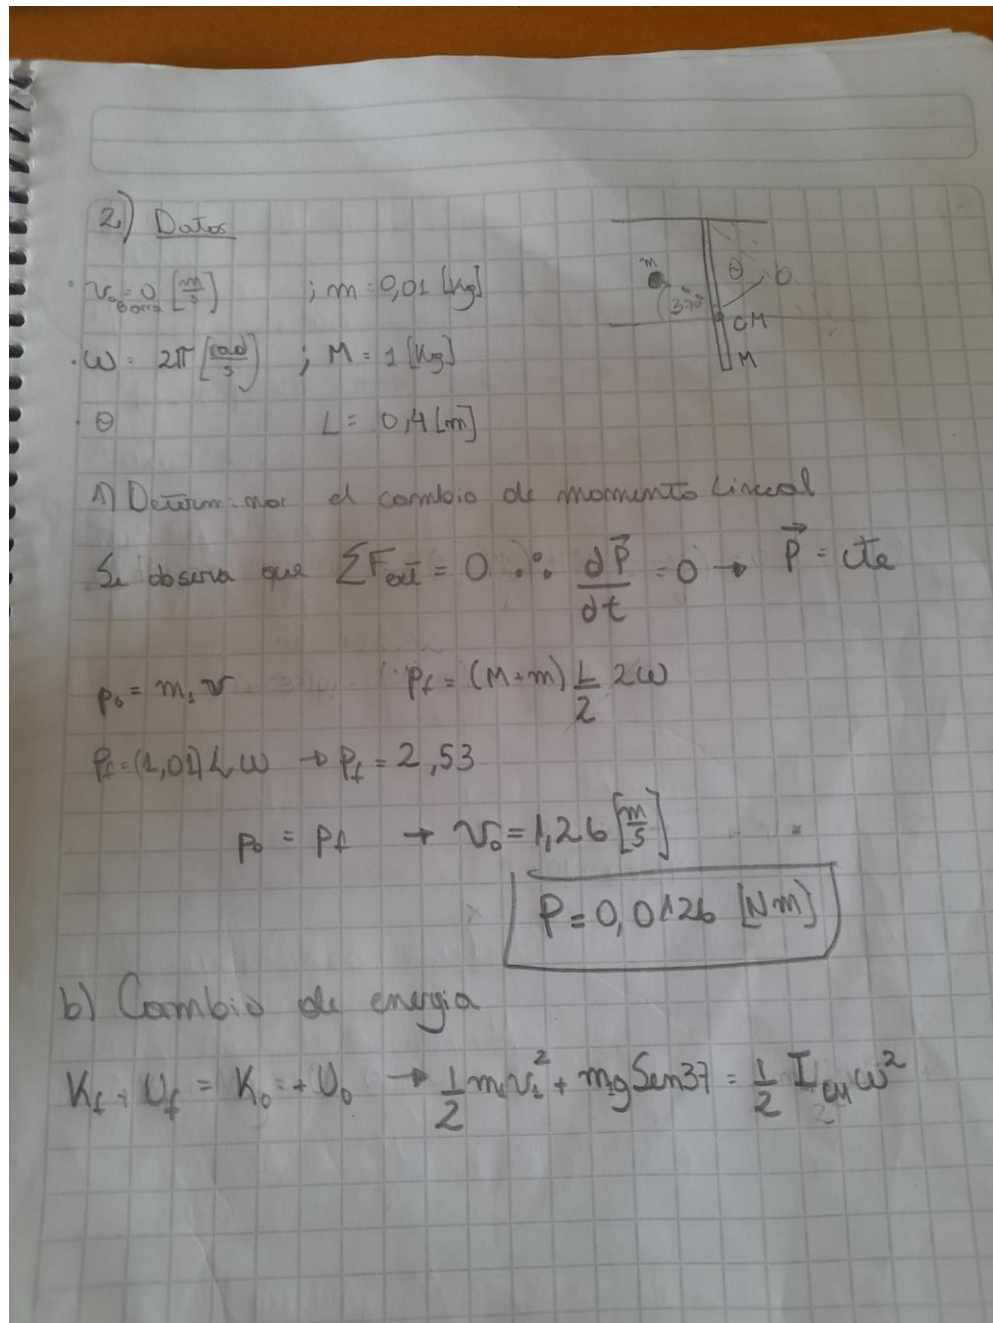 2) Datos
· v₀ Barra = 0 [m/s] ; m = 0,01 [Kg]
· ω = 2π [rad/s] ; M = 1 [Kg]
· θ L = 0,4 [m]
m
θ
O
37°
CM
M
1) Determinar el cambio de momento Lineal
Se observa que ΣF ext = 0 ∴ dP⃗/dt = 0 → P⃗ = cte
p₀ = m₁ v p_f = (M+m) L/2 2ω
p_f = (1,01) L ω → p_f = 2,53
p₀ = p_f → v₀ = 1,26 [m/s]
P = 0,0126 [Nm]
b) Cambio de energia
K_f + U_f = K₀ + U₀ → 1/2 m₁v₁² + mg Sen37 = 1/2 I_CM ω²